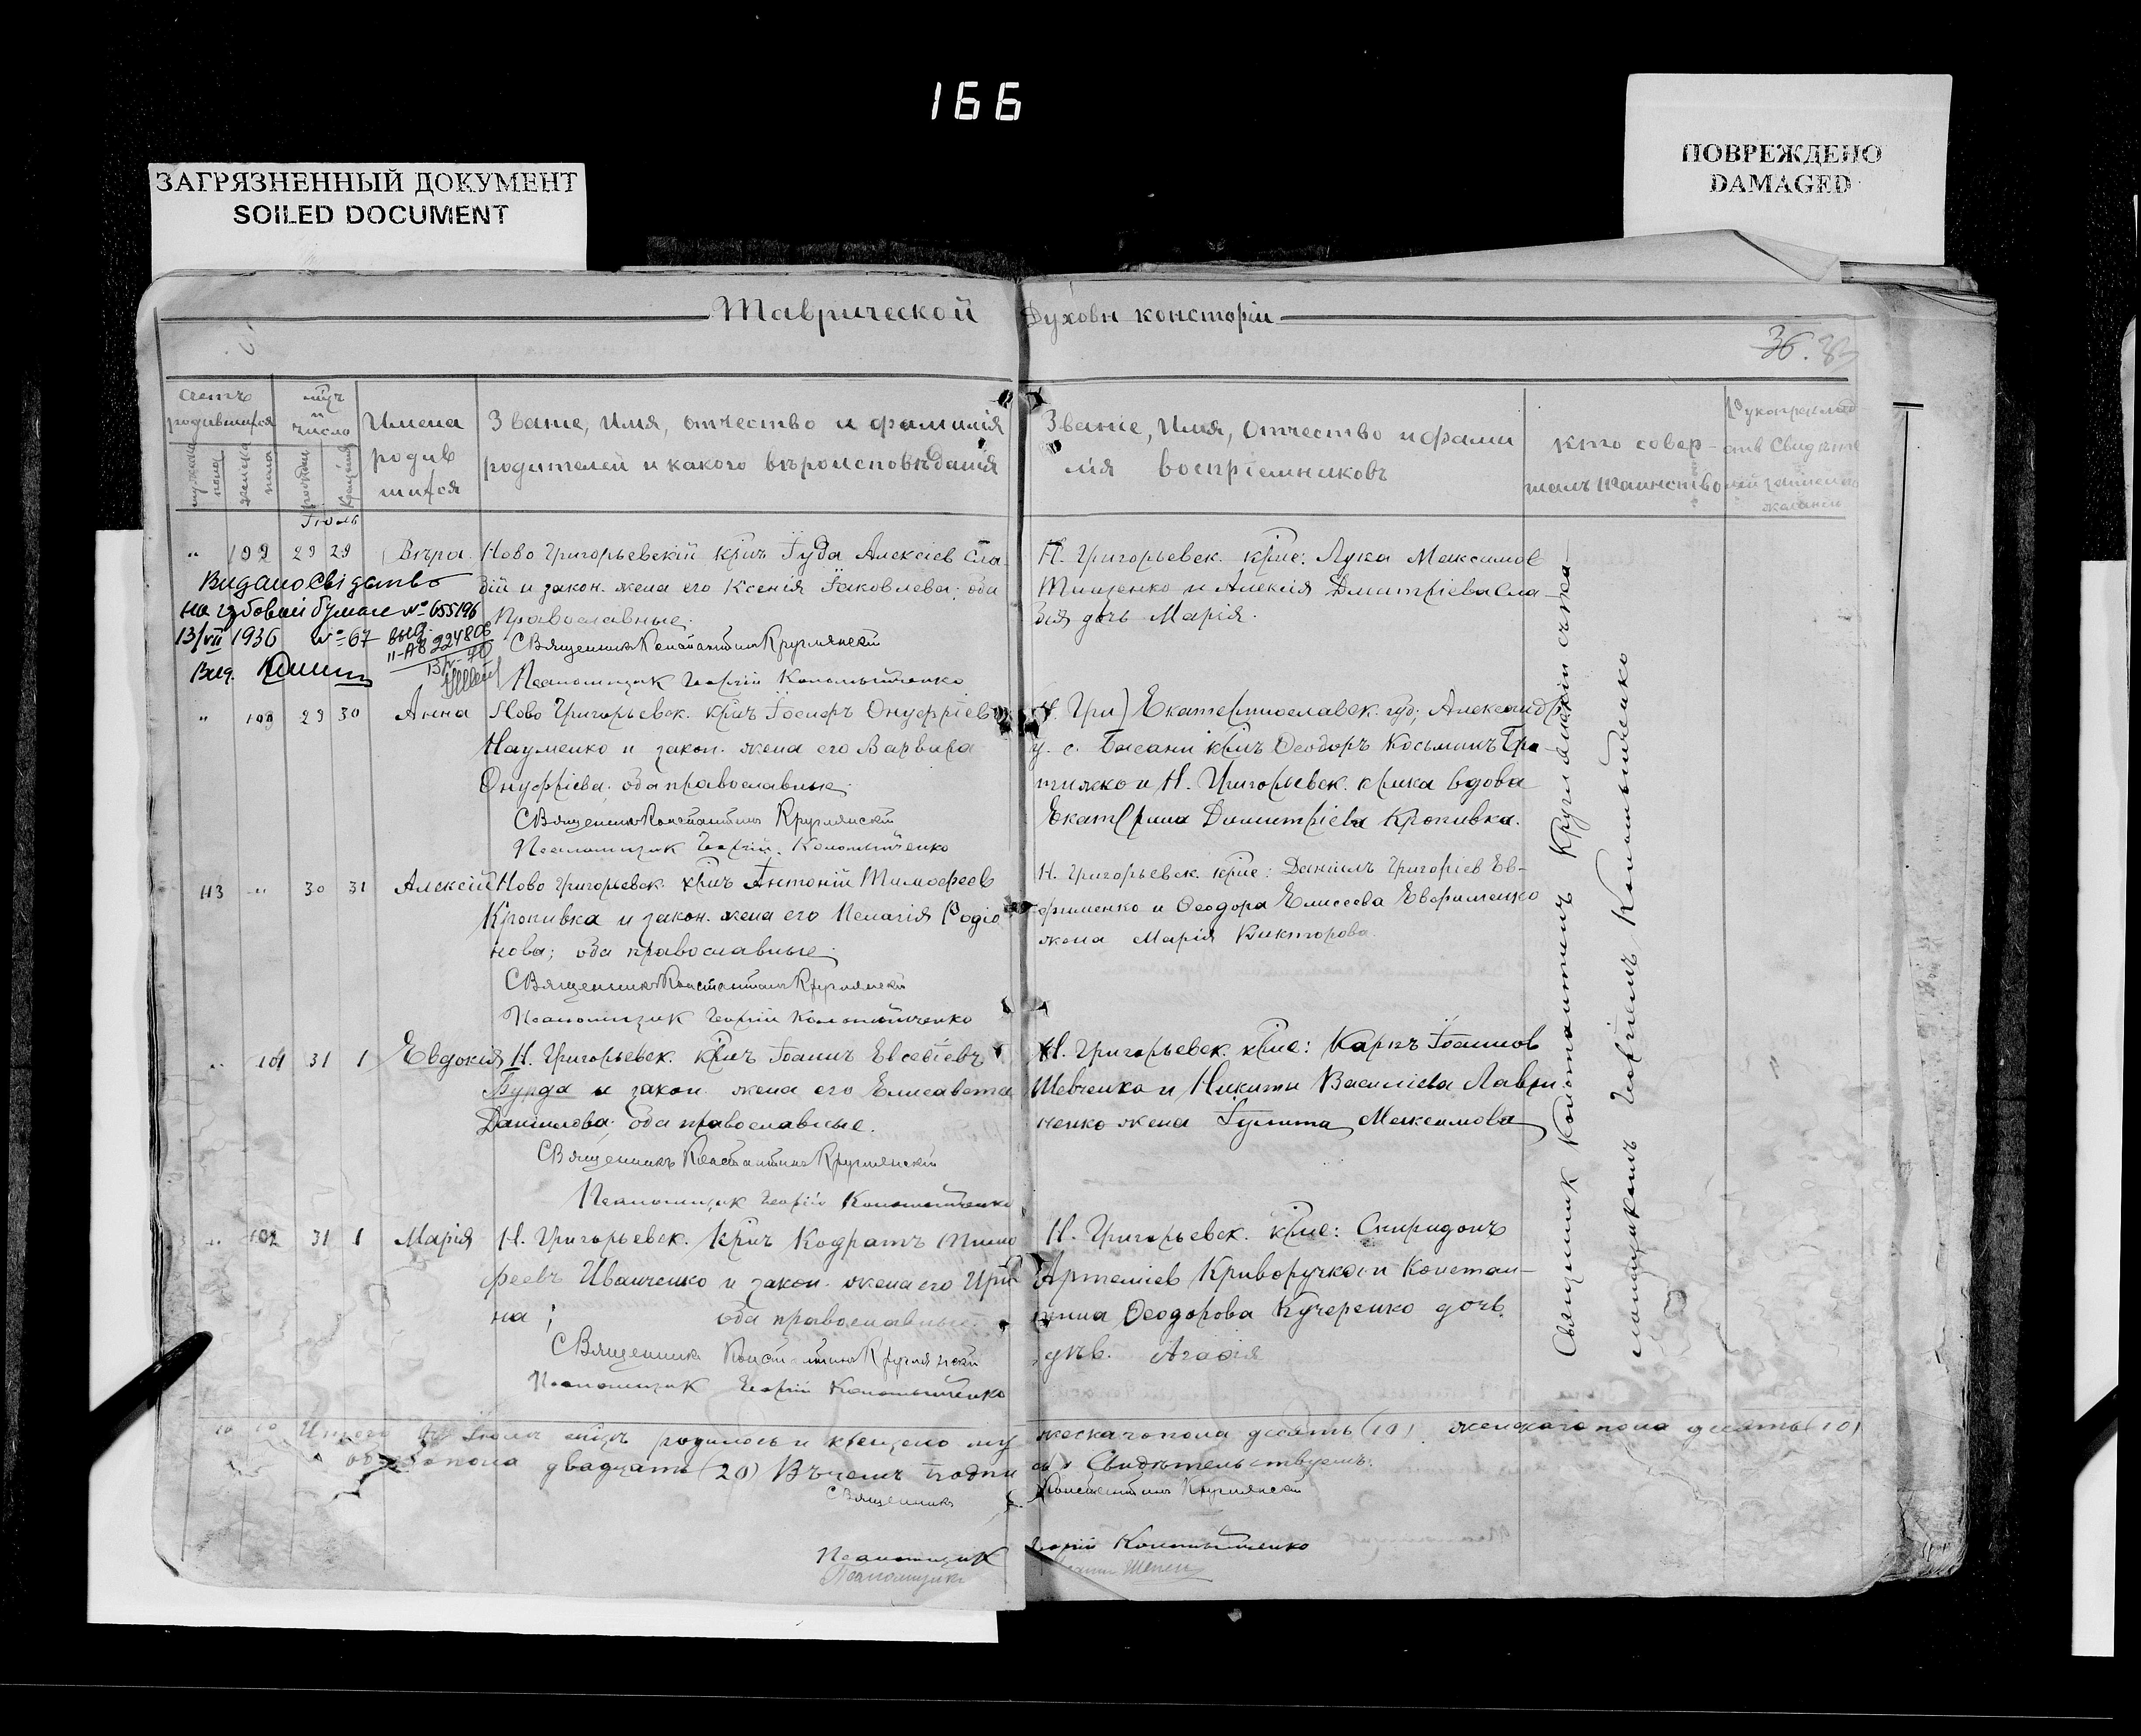 166
ЗАГРЯЗНЕННЫЙ ДОКУМЕНТ
SOILED DOCUMENT
ПОВРЕЖДЕНО
DAMAGED
Таврической Духовн консторіи
36.
счетъ родившихся
мужска пола
женска пола
мѣс. и число
рожден.
крещенія
Имена родившихся
Званіе, имя, отчество и фамилія
родителей и какого вѣроисповѣданія
Званіе, Имя, Отчество и фами
лія воспріемниковъ
кто совер-
шалъ таинство
Іюль
" 199 29 29 Вѣра. Ново Григорьевскій крнъ Іуда Алексіев Сла-
дій и закон. жена его Ксенія Іаковлева; оба
Православные.
Священникъ Константинъ Круглянскій
Псаломщик Георгій
Видано свідоцтво
на гербовій бумазі № 655196
13/VII 1936 № 67
выд.
II-АВ 224806
Н. Григорьевск. крне: Лука Максимов
Тищенко и Алексія Дмитріева Сла-
дія дочь Марія.
" 100 29 30 Анна Ново Григорьевск. крнъ Іосифъ Онуфріевъ
Науменко и закон. жена его Варвара
Онуфріева; оба православные.
Священникъ Константинъ Круглянскій
Псаломщик Георгій
Н. Гри) Екатеринославск. губ; Александр.
у. с. Басани крнъ Ѳеодоръ Косьминъ
и Н. Григорьевск. крнка вдова
Екатерина Димитріева Кропивка.
113 " 30 31 Алексій Ново Григорьевск. крнъ Антоній Тимофеев
Кропивка и закон. жена его Пелагія Родіо-
нова; оба православные.
Священникъ Константинъ Круглянскій
Псаломщик Георгій
Н. Григорьевск. крне: Даніилъ Григоріев Ев-
фименко и Ѳеодора Елисеева Евфименко
жена Марія Викторова.
" 101 31 1 Евдокія Н. Григорьевск. крнъ Іоаннъ Евсевіевъ
Бурда и закон. жена его Елисавета
Даніилова; оба православные.
Священникъ Константинъ Круглянскій
Псаломщик Георгій
Н. Григорьевск. крне: Карпъ Іоаннов
Шевченко и Никиты Василіева Лаври-
ненко жена Іулита Максимова
" 102 31 1 Марія Н. Григорьевск. крнъ Кодратъ Тимо
феевъ Иванченко и закон. жена его Ири
на; оба православные.
Священникъ Константинъ Круглянскій
Псаломщик Георгій
Н. Григорьевск. крне: Спиридонъ
Артеміев Криворучко и Констан-
тина Ѳеодорова Кучеренко дочь
дѣв. Агафія
Священник Константинъ Круглянскій съ пса-
ломщикомъ Георгіемъ
10 10 Итого въ Іюлѣ мѣцѣ родилось и крещено му
жескаго пола десять (10), женскаго пола десять (10)
обоего пола двадцать (20) Въ чемъ и подпи
сью Свидѣтельствуемъ:
Священникъ Константинъ Круглянскій
Псаломщик Георгій
Псаломщикъ